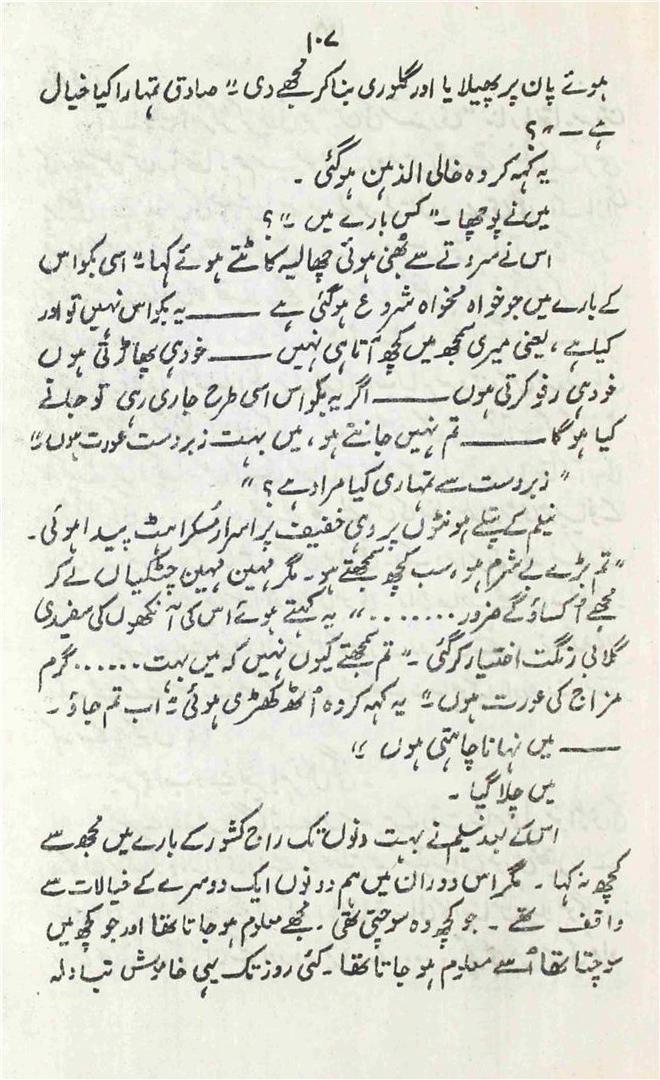 ۱۰۷
ہوئے پان پر پھیلایا اور گلوری بنا کر مجھے دی ؔ" صادق تمہارا کیا خیال
ہے ۔ "؟
یہ کہہ کر وہ خالی الذہن ہو گئی ۔
میں نے پوچھا ۔ " کس بارے میں ۔"؟
اس نے سروتے سے بھُنی ہوئی چھالیہ کاٹتے ہوئے کہا ۔" اسی بکواس
کے بارے میں جو خواہ مخواہ شروع ہو گئی ہے ——— یہ بکواس نہیں تو اور
کیا ہے ، یعنی میری سمجھ میں کچھ آتا ہی نہیں ——— خود ہی پھاڑتی ہوں
خود ہی رفو کرتی ہوں ——— اگر یہ بکواس اسی طرح جاری رہی تو جانے
کیا ہو گا ——— تم نہیں جانتے ہو ، میں بہت زبردست عورت ہوں ۔"
" زبردست سے تمہاری کیا مراد ہے ؟ "
نیلم کے پتلے ہونٹوں پر وہی خفیف پر اسرار مُسکراہٹ پیدا ہوئی ۔
" تم بڑے بے شرم ہو ، سب کچھ سمجھتے ہو ۔ مگر مہین مہین چٹکیاں لے کر
مجھے اُکساؤ گے ضرور ........" یہ کہتے ہوئے اس کی آنکھوں کی سفیدی
گلابی رنگت اختیار کر گئی ۔" تم سمجھتے کیوں نہیں کہ میں بہت ...... گرم
مزاج کی عورت ہوں ۔" یہ کہہ کر وہ اُٹھ کھڑی ہوئی ۔" اب تم جاؤ ۔
——— میں نہانا چاہتی ہوں ۔"
میں چلا گیا ۔
اس کے بعد نیلم نے بہت دنوں تک راج کشور کے بارے میں مجھ سے
کچھ نہ کہا ۔ مگر اس دوران میں ہم دونوں ایک دوسرے کے خیالات سے
واقف تھے ۔ جو کچھ وہ سوچتی تھی ۔ مجھے معلوم ہو جاتا تھا اور جو کچھ میں
سوچتا تھا اُسے معلوم ہو جاتا تھا ۔ کئی روز تک یہی خاموش تبادلہ